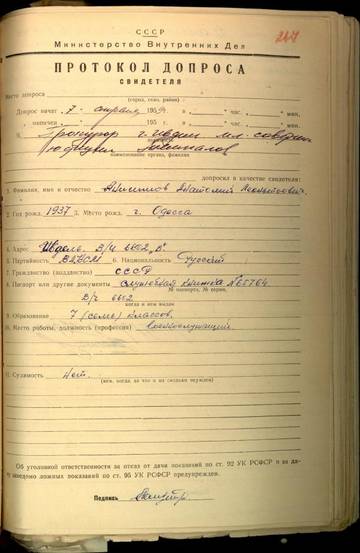 СССР
Министерство Внутренних Дел
ПРОТОКОЛ ДОПРОСА
СВИДЕТЕЛЯ
Место допроса
(город, село, район)
Допрос начат 7 апреля 1959 г. в час. мин.
окончен 195 г. в час. мин.
Прокурор г. Ивдель мл. советник
юстиции Темпалов
наименование органа, фамилия
допросил в качестве свидетеля:
1. Фамилия, имя и отчество Анатолий Леонтьевич
2. Год рожд. 1937 3. Место рожд. г. Одесса
4. Адрес: Ивдель, В/ч 6602 „В"
5. Партийность ВЛКСМ 6. Национальность русский
7. Гражданство (подданство) СССР
8. Паспорт или другие документы служебная книжка №
№ паспорта, № серии,
В/ч 6602
когда и кем выдан
9. Образование 7 (семь) классов.
10. Место работы, должность (профессия) Военнослужащий
11. Судимость Нет.
(кем, когда, за что и на сколько осужден)
Об уголовной ответственности за отказ от дачи показаний по ст. 92 УК РСФСР и за да-
чу заведомо ложных показаний по ст. 95 УК РСФСР предупрежден.
Подпись